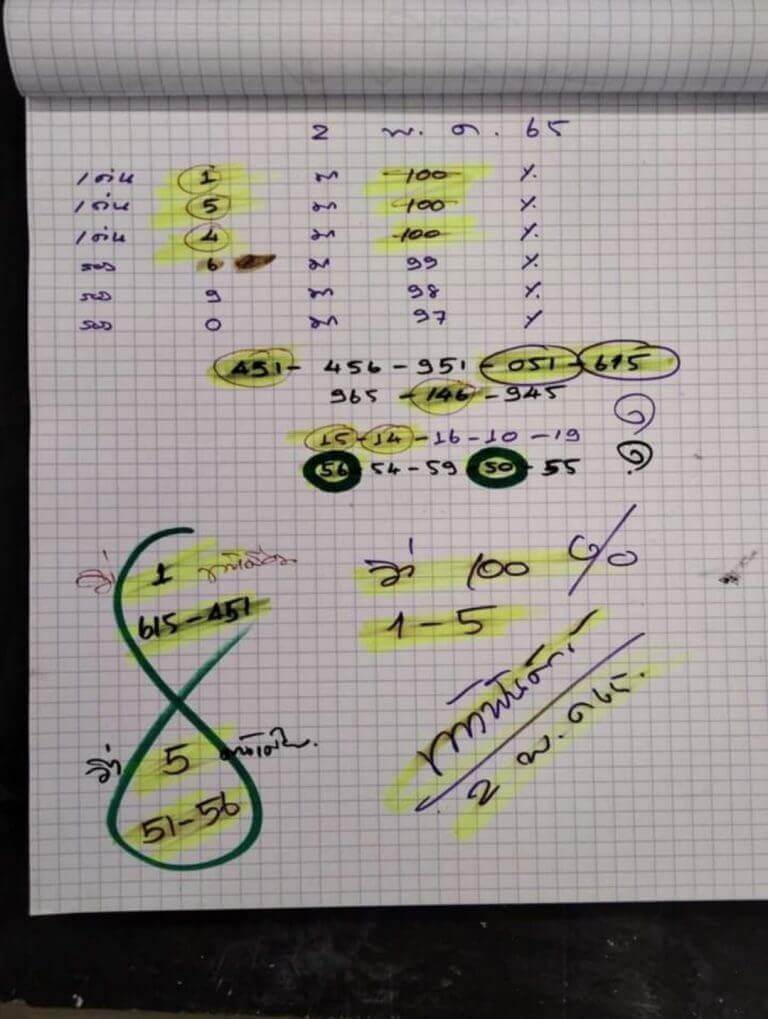 2 พ. ค. 65
1 เด่น 1 มา 100 %
1 เด่น 5 มา 100 %
1 เด่น 4 มา 100 %
รอง 6 มา 99 %
รอง 9 มา 98 %
รอง 0 มา 97 %
451 - 456 - 951 - 051 - 615
965 - 146 - 945
15 - 14 - 16 - 10 - 19
56 - 54 - 59 - 50 - 55
1
615 - 451
วิ่ง 100 %
1 - 5
5
51 - 56
2 พ. ค 65.